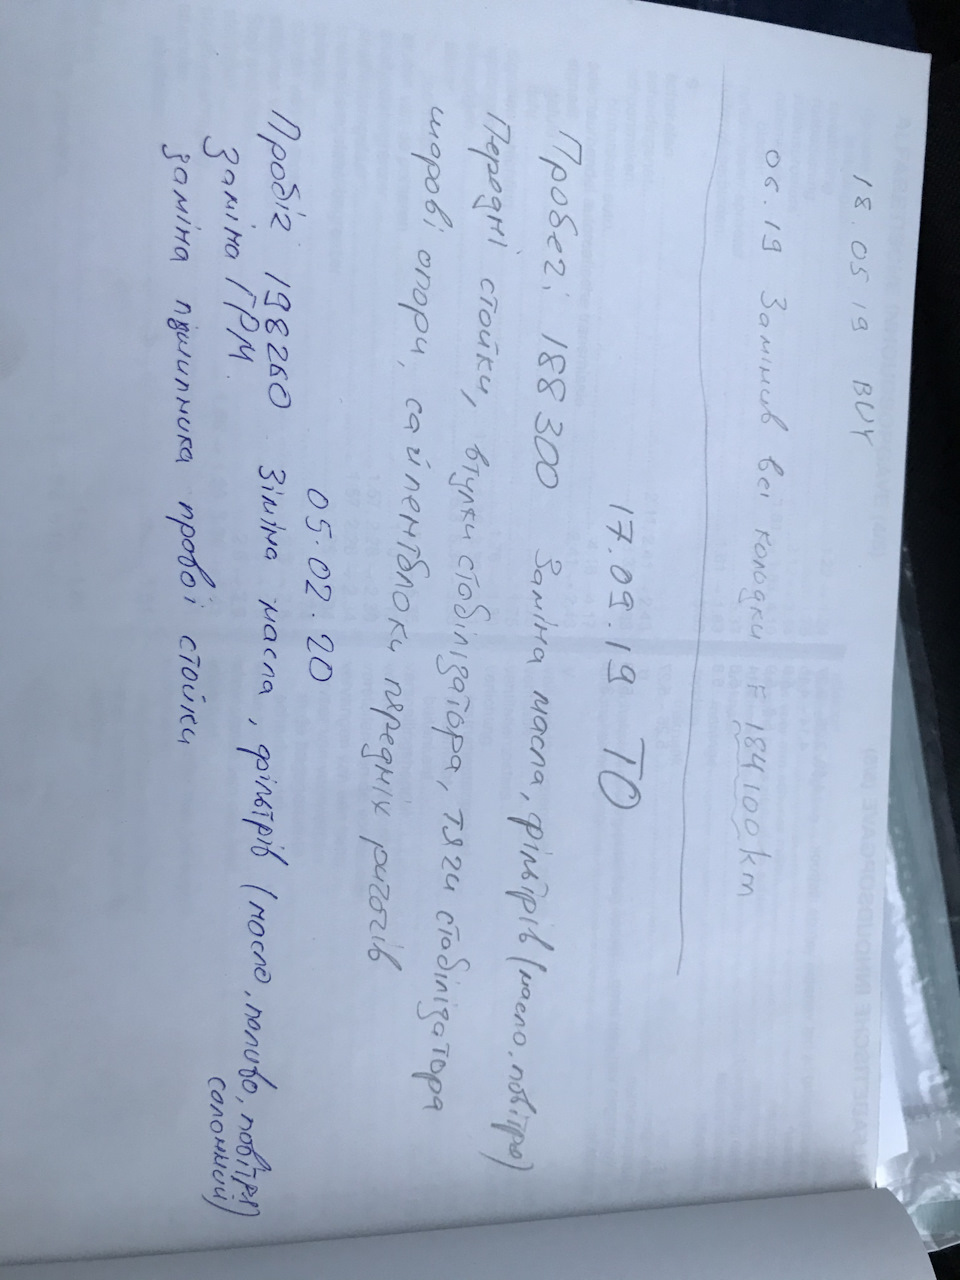 18.05 19 BUY
06.19 Замінив всі колодки F 184100km
17.09.19 ТО
Пробег 188 300 Заміна масла, фільтрів (масло, повітря)
Передні стойки, втулки стабілізатора, тяги стабілізатора
шарові опори, сайлентблоки пяредніх ричагів
05.02.20
Пробіг 198260 Зіміна масла, фільтрів (масло, паливо, повітря
салонний)
Заміна ГРМ.
Заміна пішипника правої стойки